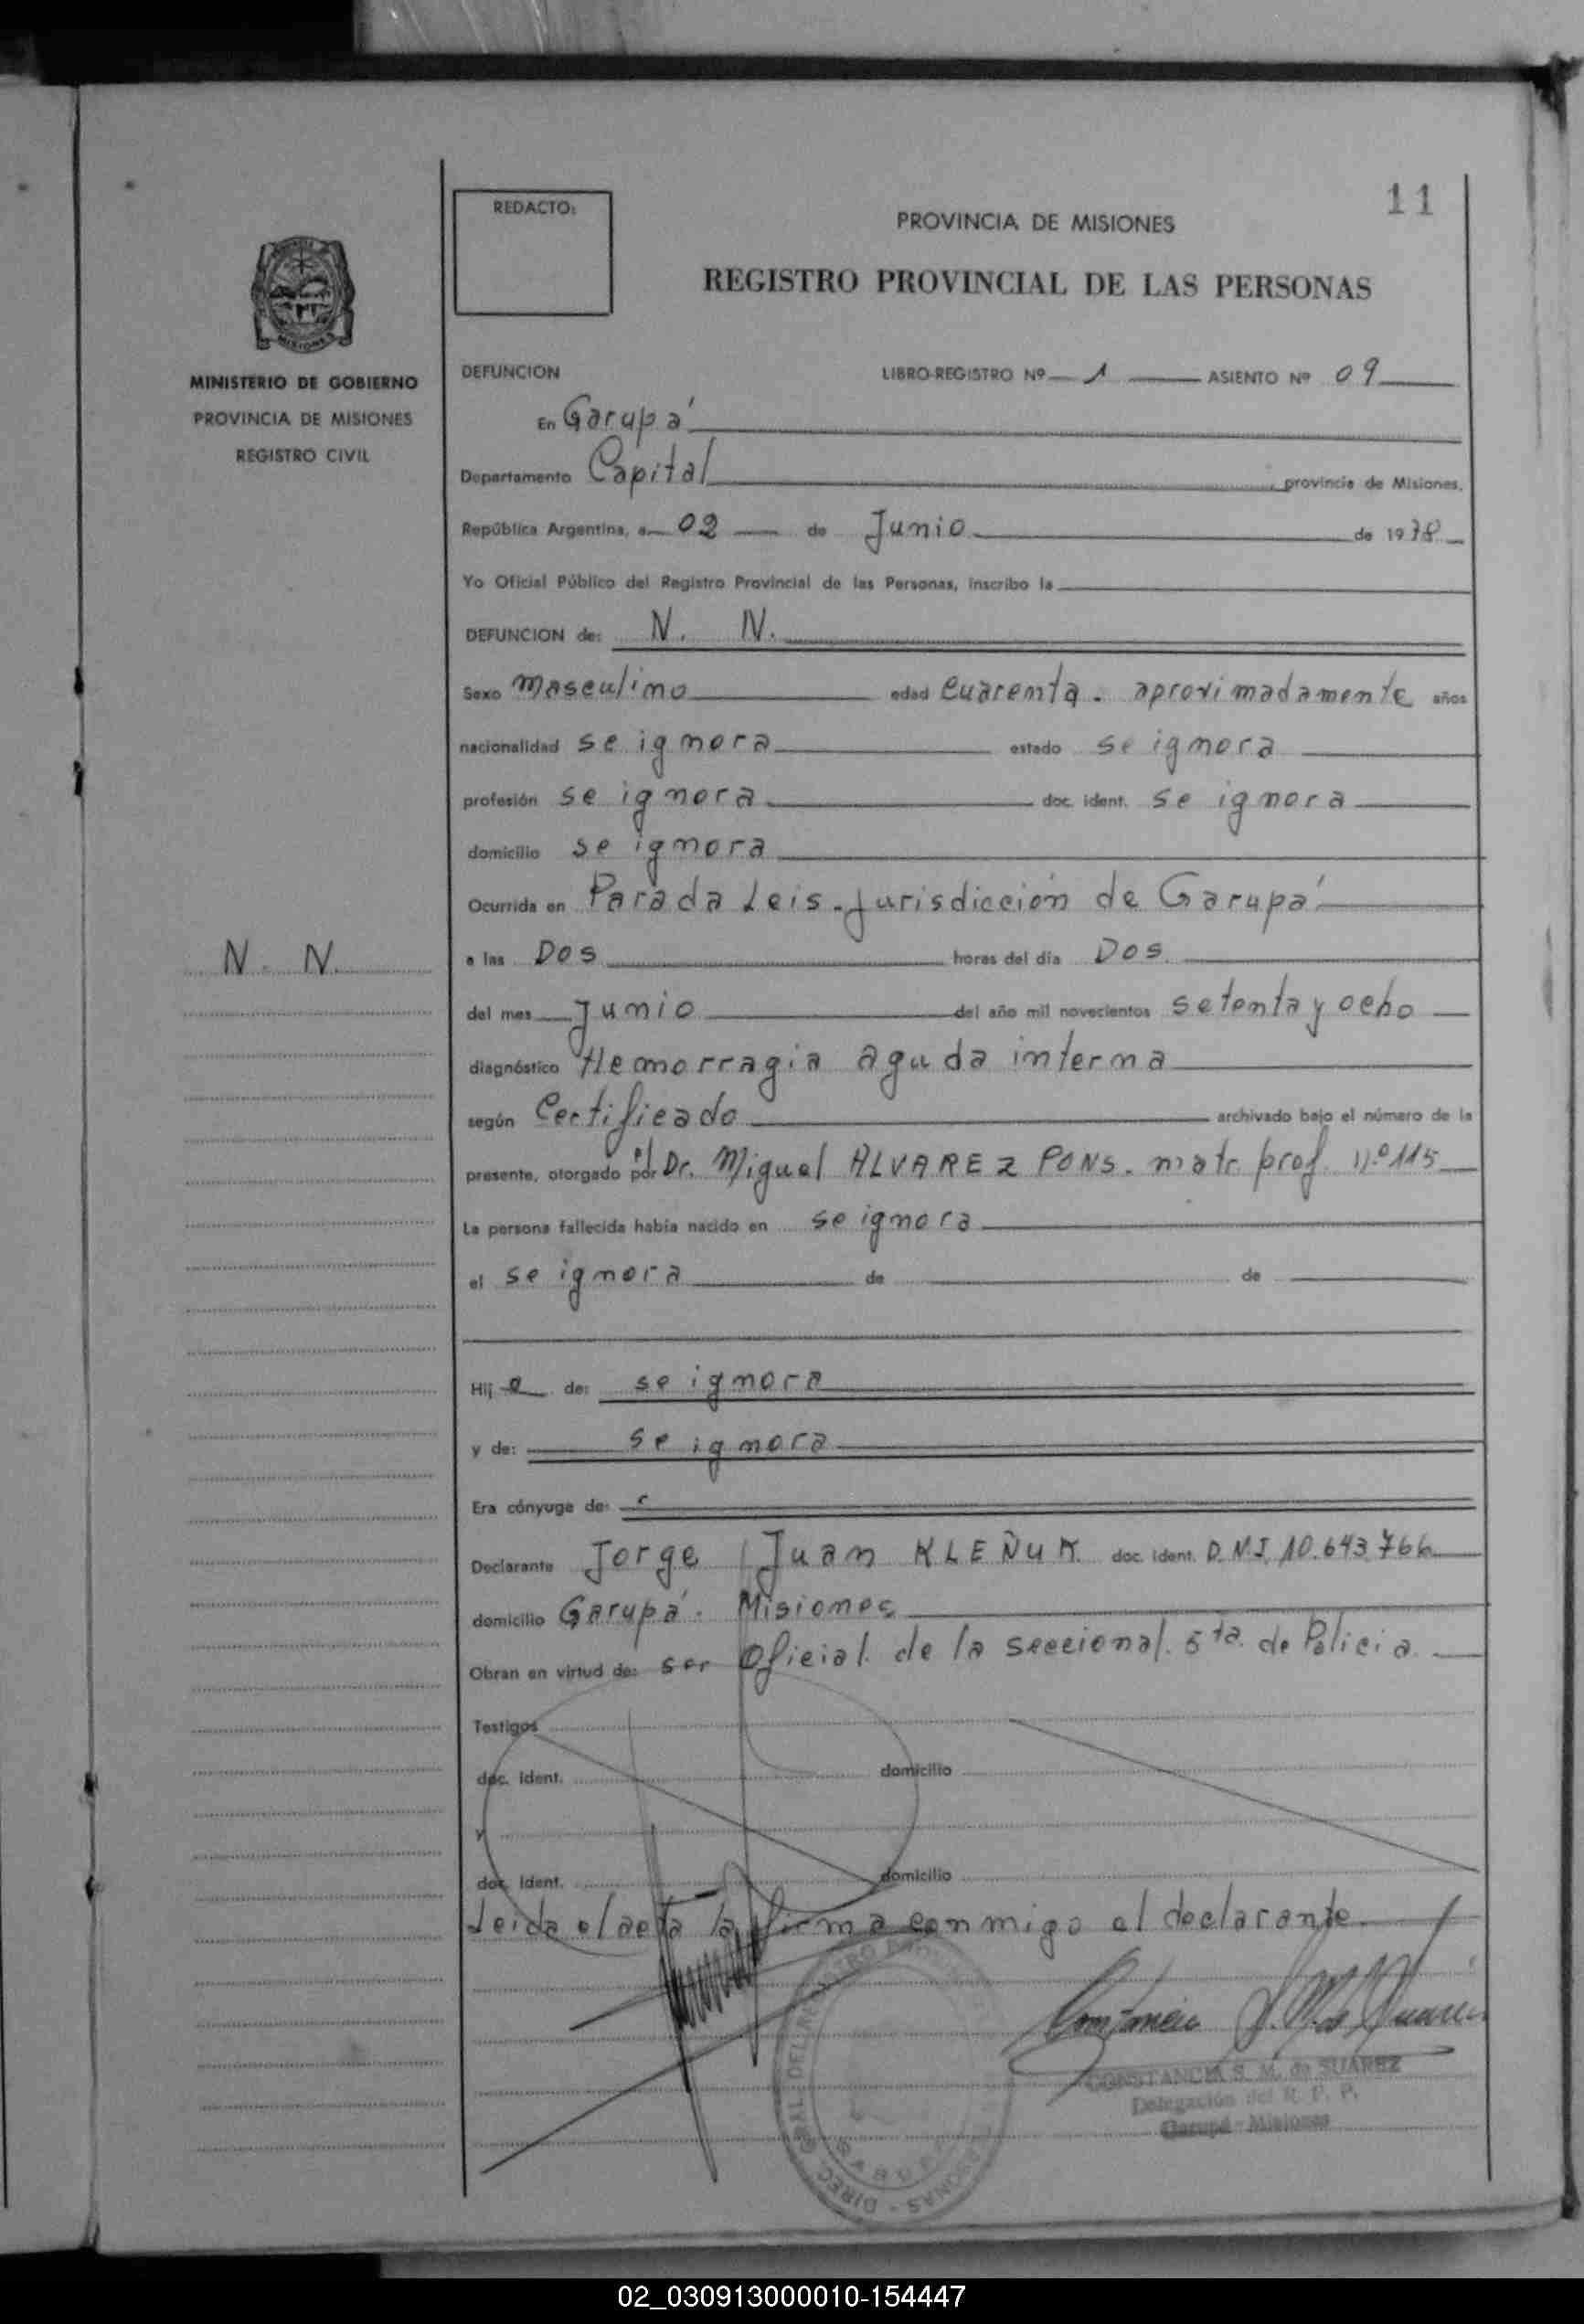 11
REDACTO:
PROVINCIA DE MISIONES
REGISTRO PROVINCIAL DE LAS PERSONAS
MISIONES
MINISTERIO DE GOBIERNO
PROVINCIA DE MISIONES
REGISTRO CIVIL
DEFUNCION LIBRO-REGISTRO Nº 1 ASIENTO Nº 09
En Garupá
Departamento Capital provincia de Misiones,
República Argentina, a 02 de Junio de 1978
Yo Oficial Público del Registro Provincial de las Personas, inscribo la
DEFUNCION de: N. N.
Sexo Masculino edad cuarenta. aproximadamente años
nacionalidad se ignora estado se ignora
profesión se ignora doc. ident. se ignora
domicilio se ignora
Ocurrida en Parada Leis. Jurisdicción de Garupá
N. N.
a las Dos horas del día Dos
del mes Junio del año mil novecientos setenta y ocho
diagnóstico Hemorragia aguda interna
según Certificado archivado bajo el número de la
presente, otorgado por el Dr. Miguel ALVAREZ PONS. matr. prof. nº 115
La persona fallecida había nacido en se ignora
el se ignora de de
Hij o de: se ignora
y de: se ignora
Era cónyuge de:
Declarante Jorge Juan KLEÑUK doc. ident. D.N.I. 10.643.766
domicilio Garupá. Misiones
Obran en virtud de: ser Oficial de la seccional 5ta. de Policia
Testigos
doc. ident. domicilio
y
doc. ident. domicilio
Leida el acta la firma conmigo el declarante
CONSTANCIA S. M. de SUAREZ
Delegación del R. P. P.
Garupá - Misiones
02_030913000010-154447